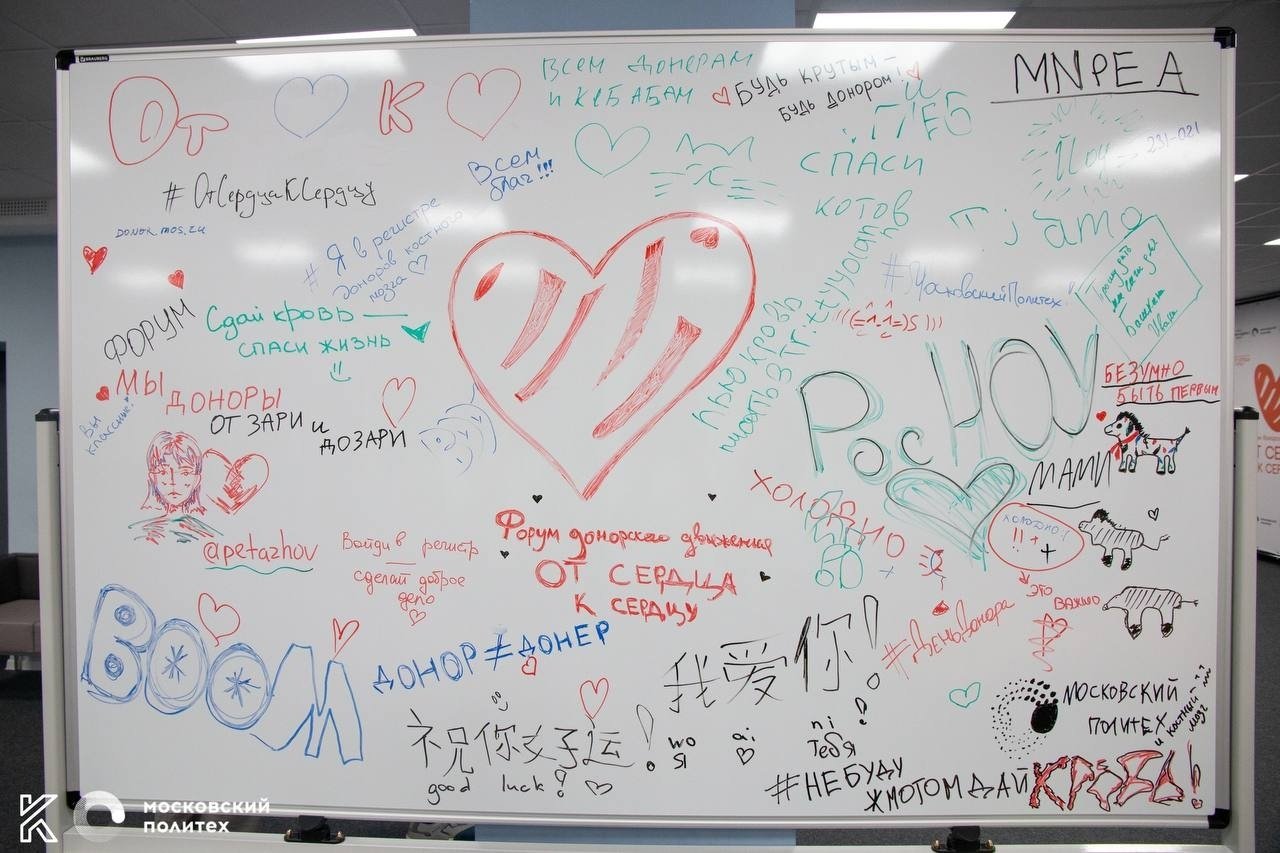 BRAUBERG
От К
ВСЕМ ДОНЕРАМ
И КЕБАБАМ
БУДЬ КРУТЫМ —
БУДЬ ДОНОРОМ!
MNPEA
#ОтСердцаКСердцу
ВСЕМ
благ!!!
СПАСИ
КОТОВ
231-021
DONOR.MOS.RU
# Я в регистре
доноров костного
мозга
#МосковскийПолитех
(((=^-^=)S)))
ФОРУМ
Сдай кровь —
СПАСИ ЖИЗНЬ
ПЬЮ КРОВЬ
писать в ТГ:
РосНОУ
БЕЗУМНО
БЫТЬ ПЕРВЫМ
МЫ
ДОНОРЫ
ОТ ЗАРИ И
ДОЗАРИ
ВЫ
классные!
МАМИ
ХОЛОДНО
ХОЛОДНО!
!! ++
ЭТО
ВАЖНО
@petazhov
Войди в регистр
сделай доброе
дело
Форум донорского движения
ОТ СЕРДЦА
К СЕРДЦУ
#ДеньДонора
ВООМ
ДОНОР ≠ ДОНЕР
我爱你!
wo ai ni
Я тебя
祝你好运!
good luck!
МОСКОВСКИЙ
ПОЛИТЕХ
и костный
мозг
#НЕБУДУ
ЖМОТОМДАЙ
КРОВЬ!
К МОСКОВСКИЙ
ПОЛИТЕХ